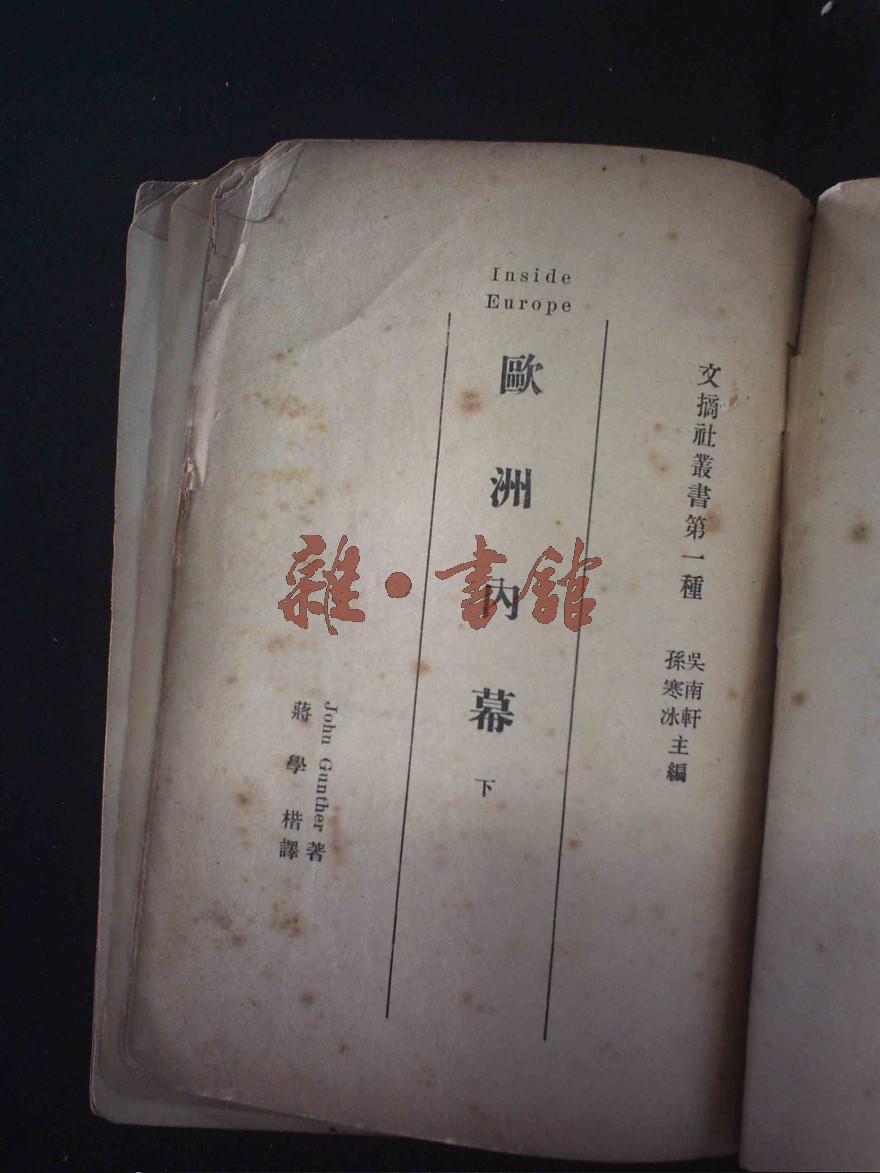 文摘社叢書第一種
吳南軒
孫寒冰
主編
Inside
Europe
歐洲內幕
下
John Gunther 著
蔣學楷譯
雜·書館